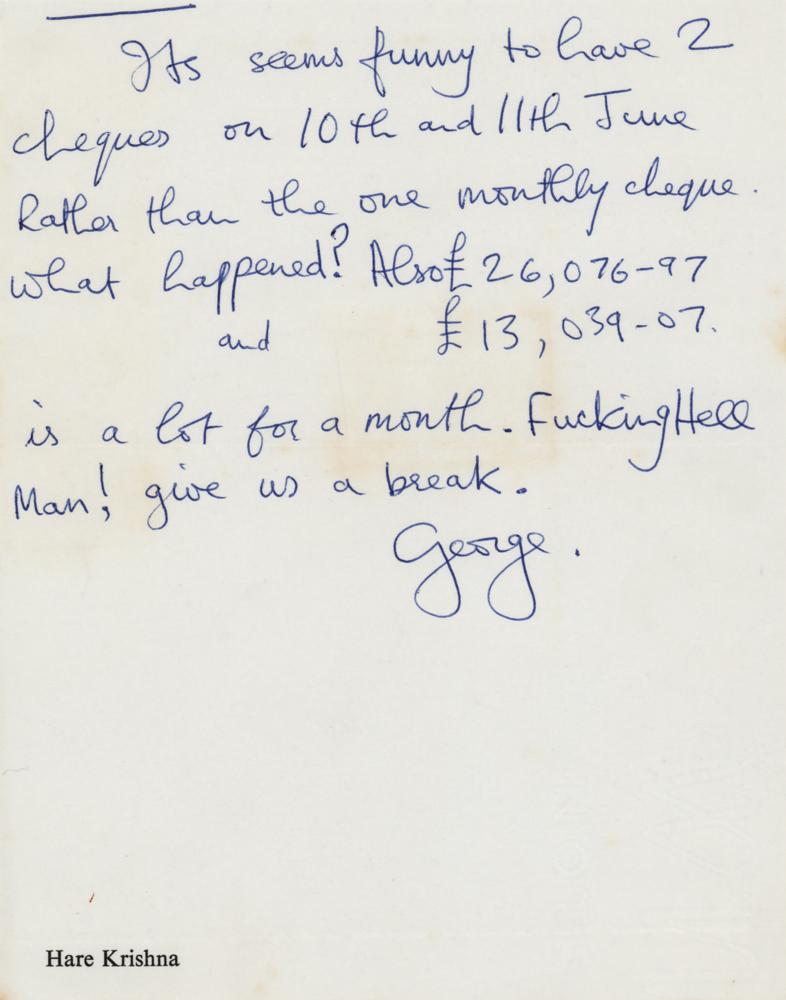 Its seems funny to have 2
cheques on 10th and 11th June
Rather than the one monthly cheque.
what happened? Also £26,076-97
and £13,039-07.
is a lot for a month. Fucking Hell
Man! give us a break.
George.
Hare Krishna